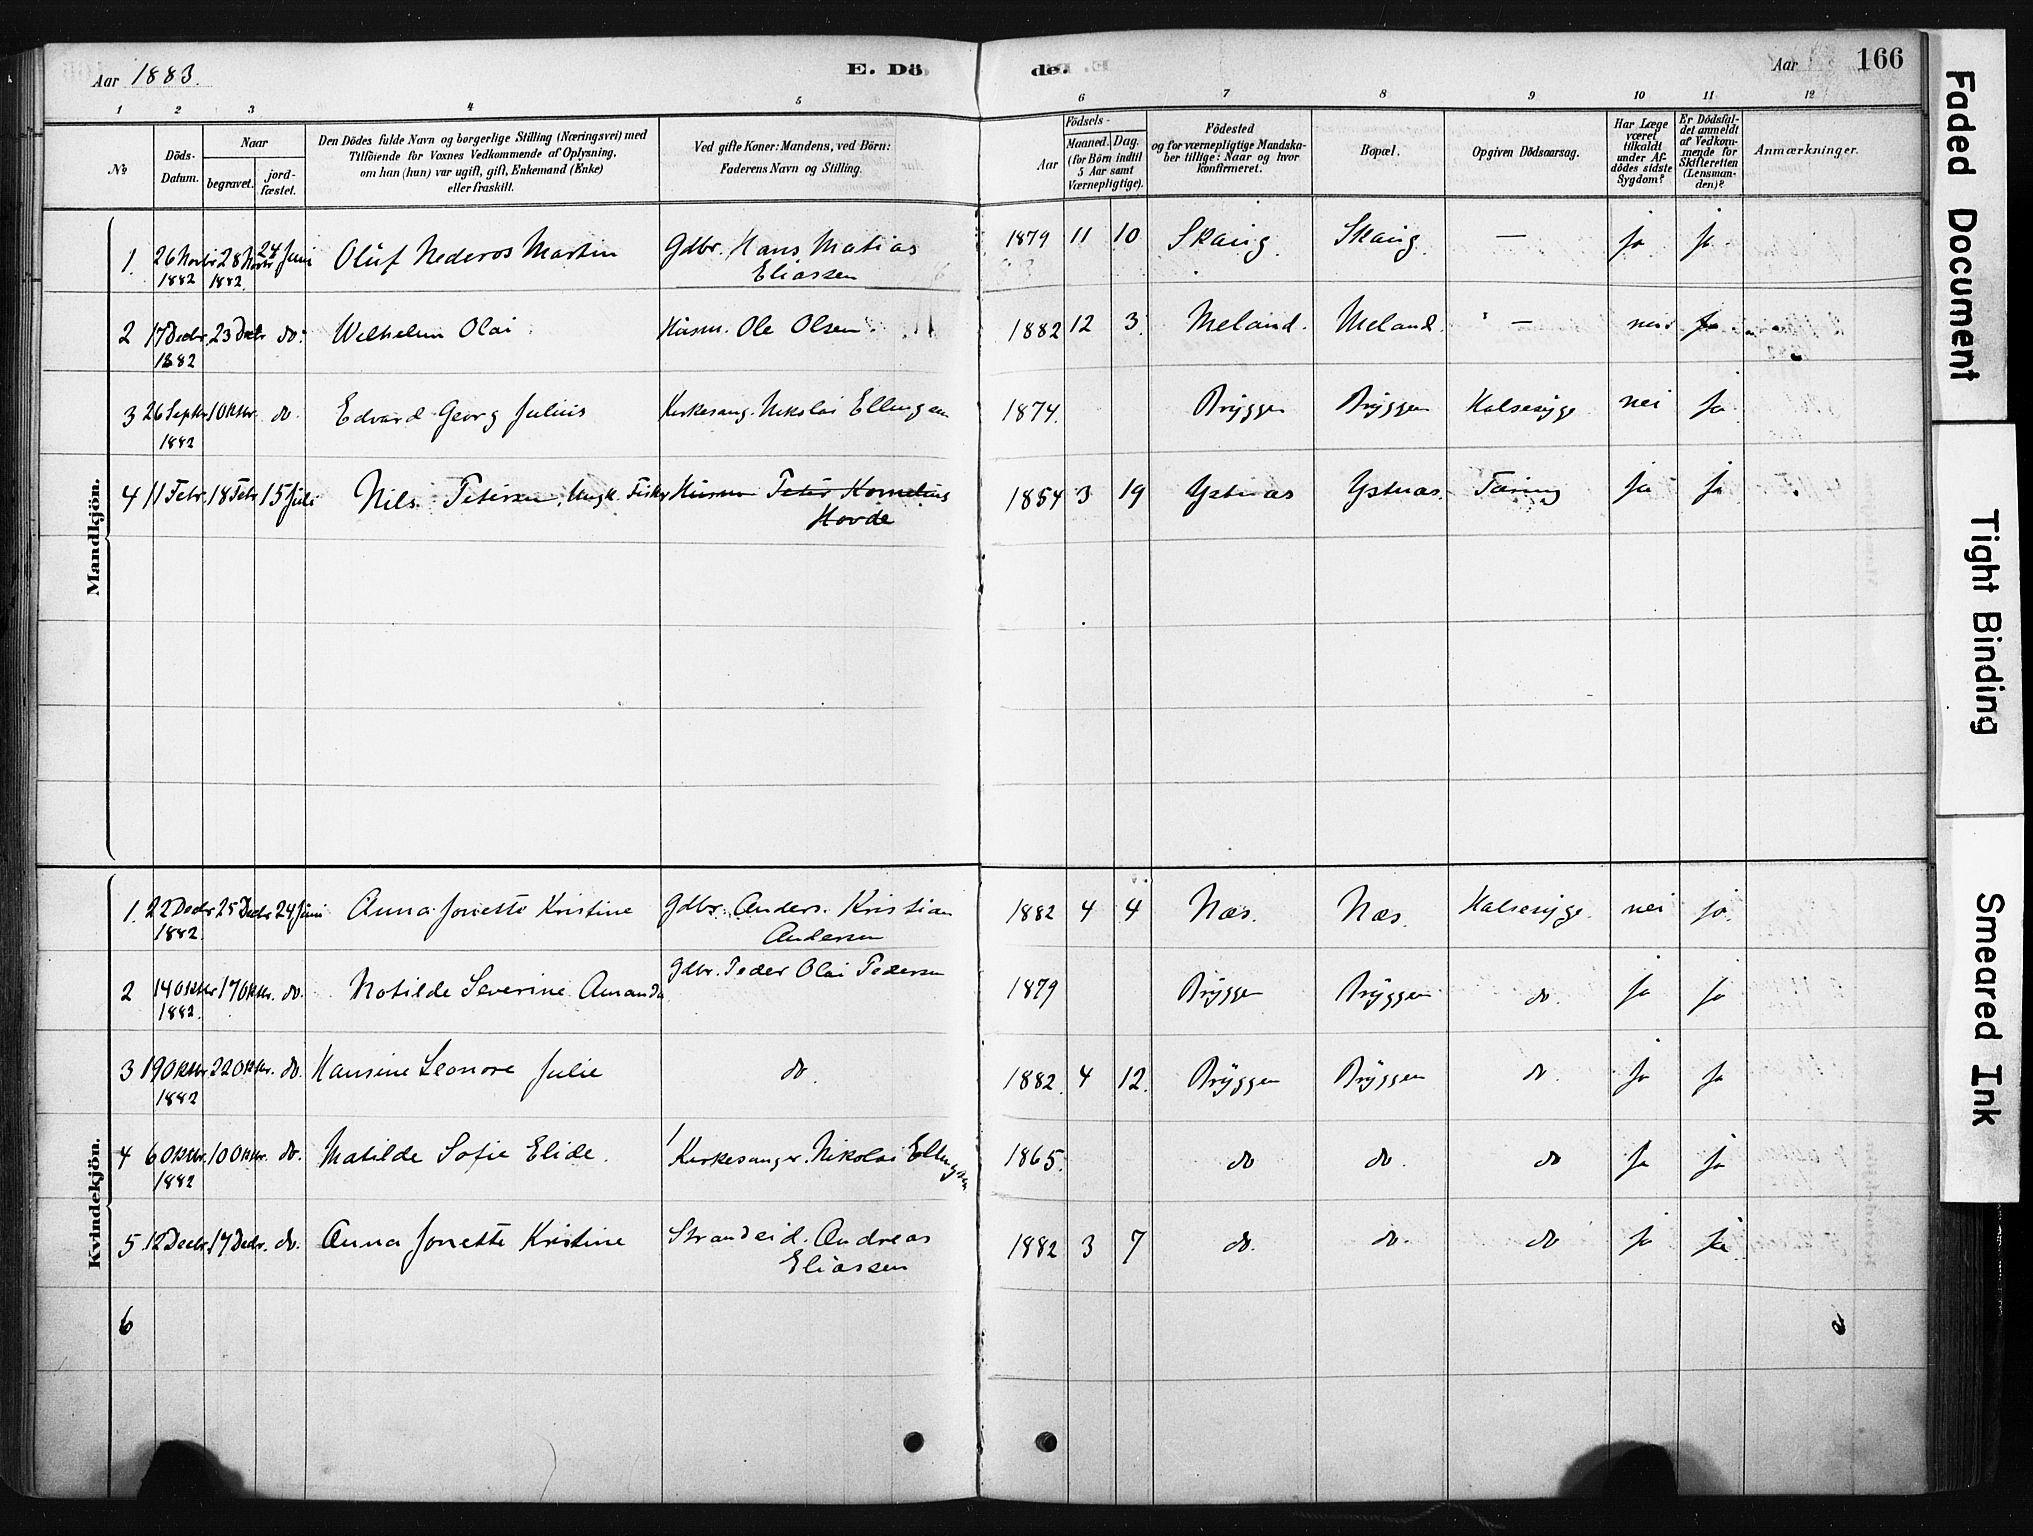 Aar 1883.
E. Dö
de.
Aar
166
1 2 3 4 5 6 7 8 9 10 11 12
No
Döds-
Datum.
Naar
begravet.
jord-
fæstet.
Den Dödes fulde Navn og borgerlige Stilling (Næringsvei) med
Tilföiende for Voxnes Vedkommende af Oplysning,
om han (hun) var ugift, gift, Enkemand (Enke)
eller fraskilt.
Ved gifte Koner: Mandens, ved Börn:
Faderens Navn og Stilling.
Födsels-
Aar
Maaned.
Dag.
(for Börn indtil
5 Aar samt
Værnepligtige).
Födested
og for værnepligtige Mandska-
ber tillige: Naar og hvor
konfirmeret.
Bopæl.
Opgiven Dödsaarsag.
Har Læge
været
tilkaldt
under Af-
dödes sidste
Sygdom?
Er Dödsfal-
det anmeldt
af Vedkom-
mende for
Skifteretten
(Lensman-
den)?
Anmærkninger.
Mandkjön.
1. 26 Novbr 28 Novbr 24 Juni Oluf Nederos Martin Gdbr. Hans Matias 1879 11 10 Skaug. Skaug. — ja ja
1882 1882 Eliassen
2 17 Decbr. 23 Decbr do. Wilhelm Olai Husm. Ole Olsen. 1882 12 3. Meland. Meland. — nei ja
1882
3 26 Septbr. 1 Oktbr. do. Edvard Georg Julius Kirkesang. Nikolai Ellingsen 1874. Bryggen Bryggen Halsesyge nei ja
1882
4 11 Febr. 18 Febr 15 Juli Nils Petersen, Ungk. Fisker Husm Peter Kornelius 1854 3 19 Ystnæs Ystnæs. Tæring ja ja
Hovde
Kvindekjön.
1. 22 Decbr 25 Decbr 24 Juni Anna Jonette Kristine Gdbr. Anders Kristian 1882 4 4 Næs. Næs. Halsesyge. nei ja.
1882. Andersen
2 14 Oktbr 17 Oktbr. do. Matilde Severine Amanda Gdbr. Peder Olai Pedersen 1879 Bryggen Bryggen do. ja ja
1882.
3 19 Oktbr. 22 Oktbr. do. Hansine Leonore Julie do. 1882. 4 12. Bryggen Bryggen do. ja ja
1882
4 6 Oktbr. 10 Oktbr. do. Matilde Sofie Elide. Kirkesanger. Nikolai Ellingsen 1865. do do. do ja ja
1882
5 12 Decbr. 17 Decbr. do. Anna Jonette Kristine Strandsid. Andreas 1882 3 7 do. do. do ja ja
Eliassen
6
Faded Document
Tight Binding
Smeared Ink